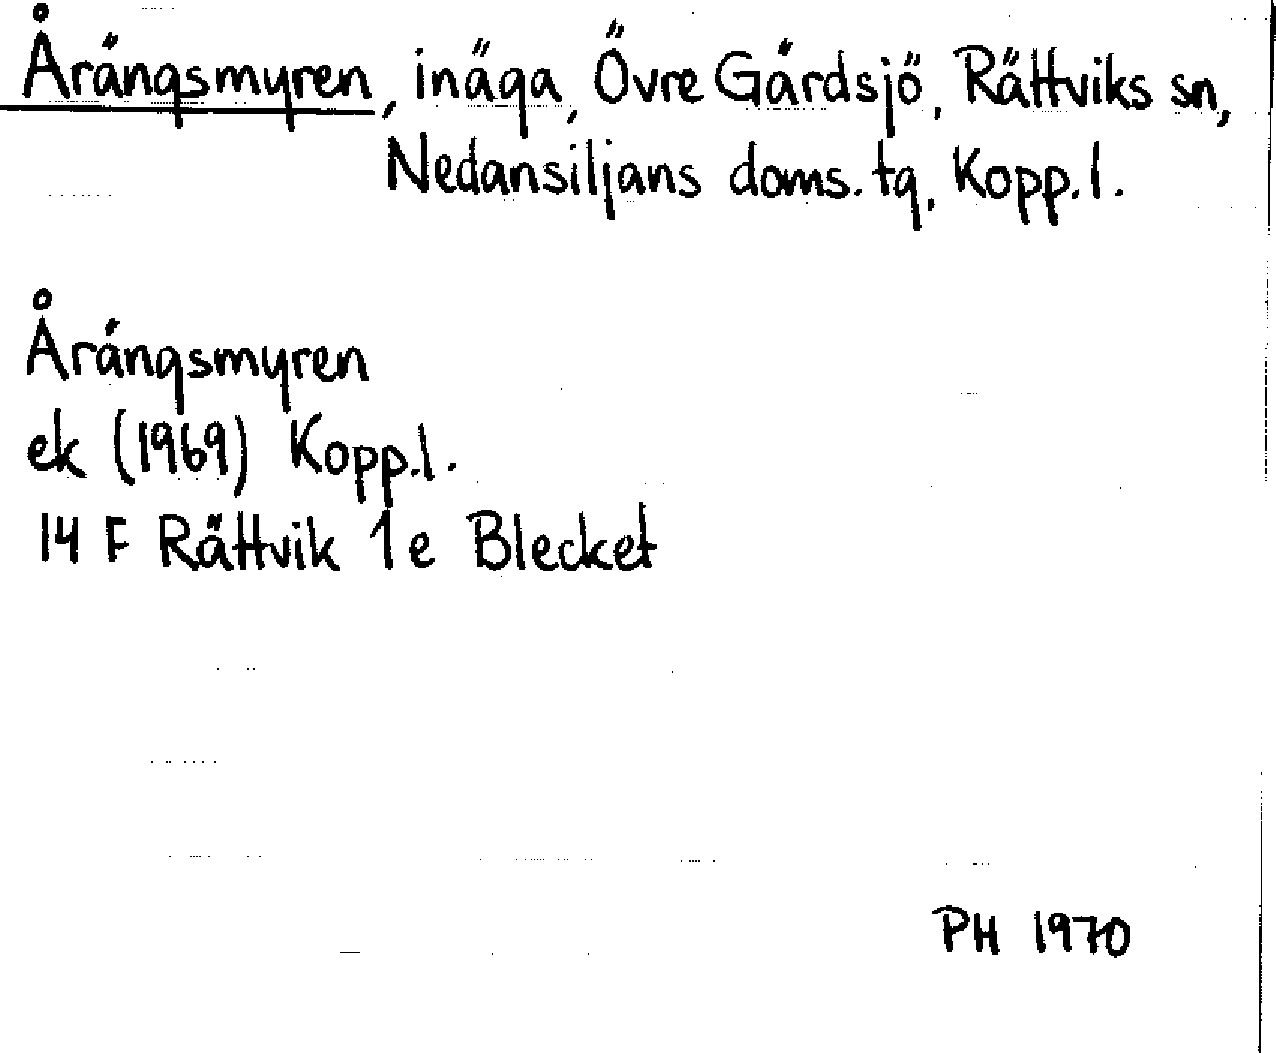 Årängsmyren, inäga, Övre Gärdsjö, Rättviks sn,
Nedansiljans doms. tg, Kopp.l.
Årängsmyren
ek (1969) Kopp.l.
14 F Rättvik 1e Blecket
PH 1970